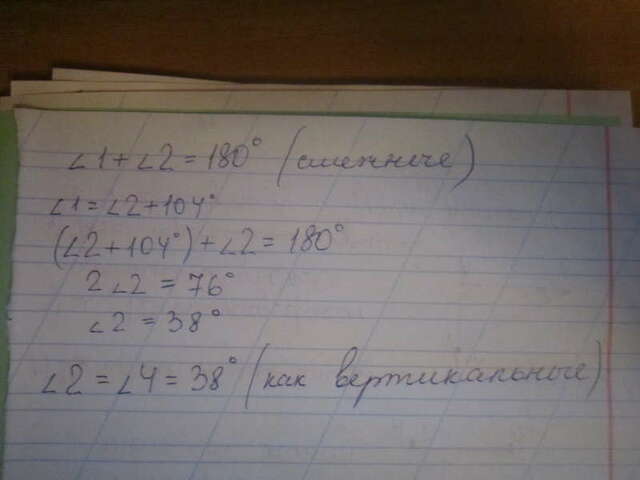 ∠1+∠2=180° (смежные)
∠1=∠2+104°
(∠2+104°)+∠2=180°
2∠2=76°
∠2=38°
∠2=∠4=38° (как вертикальные)